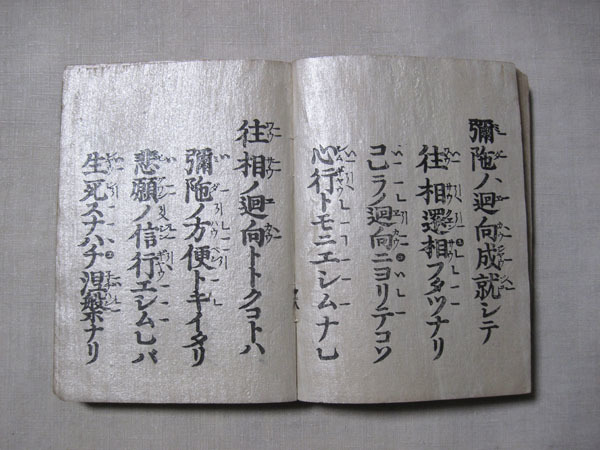 彌陁ノ廻向成就シテ
往相還相フタツナリ
コレラノ廻向ニヨリテコソ
心行トモニエシムナレ
往相ノ廻向トトクコトハ
彌陁ノ方便トキイタリ
悲願ノ信行エシムレバ
生死スナハチ涅槃ナリ